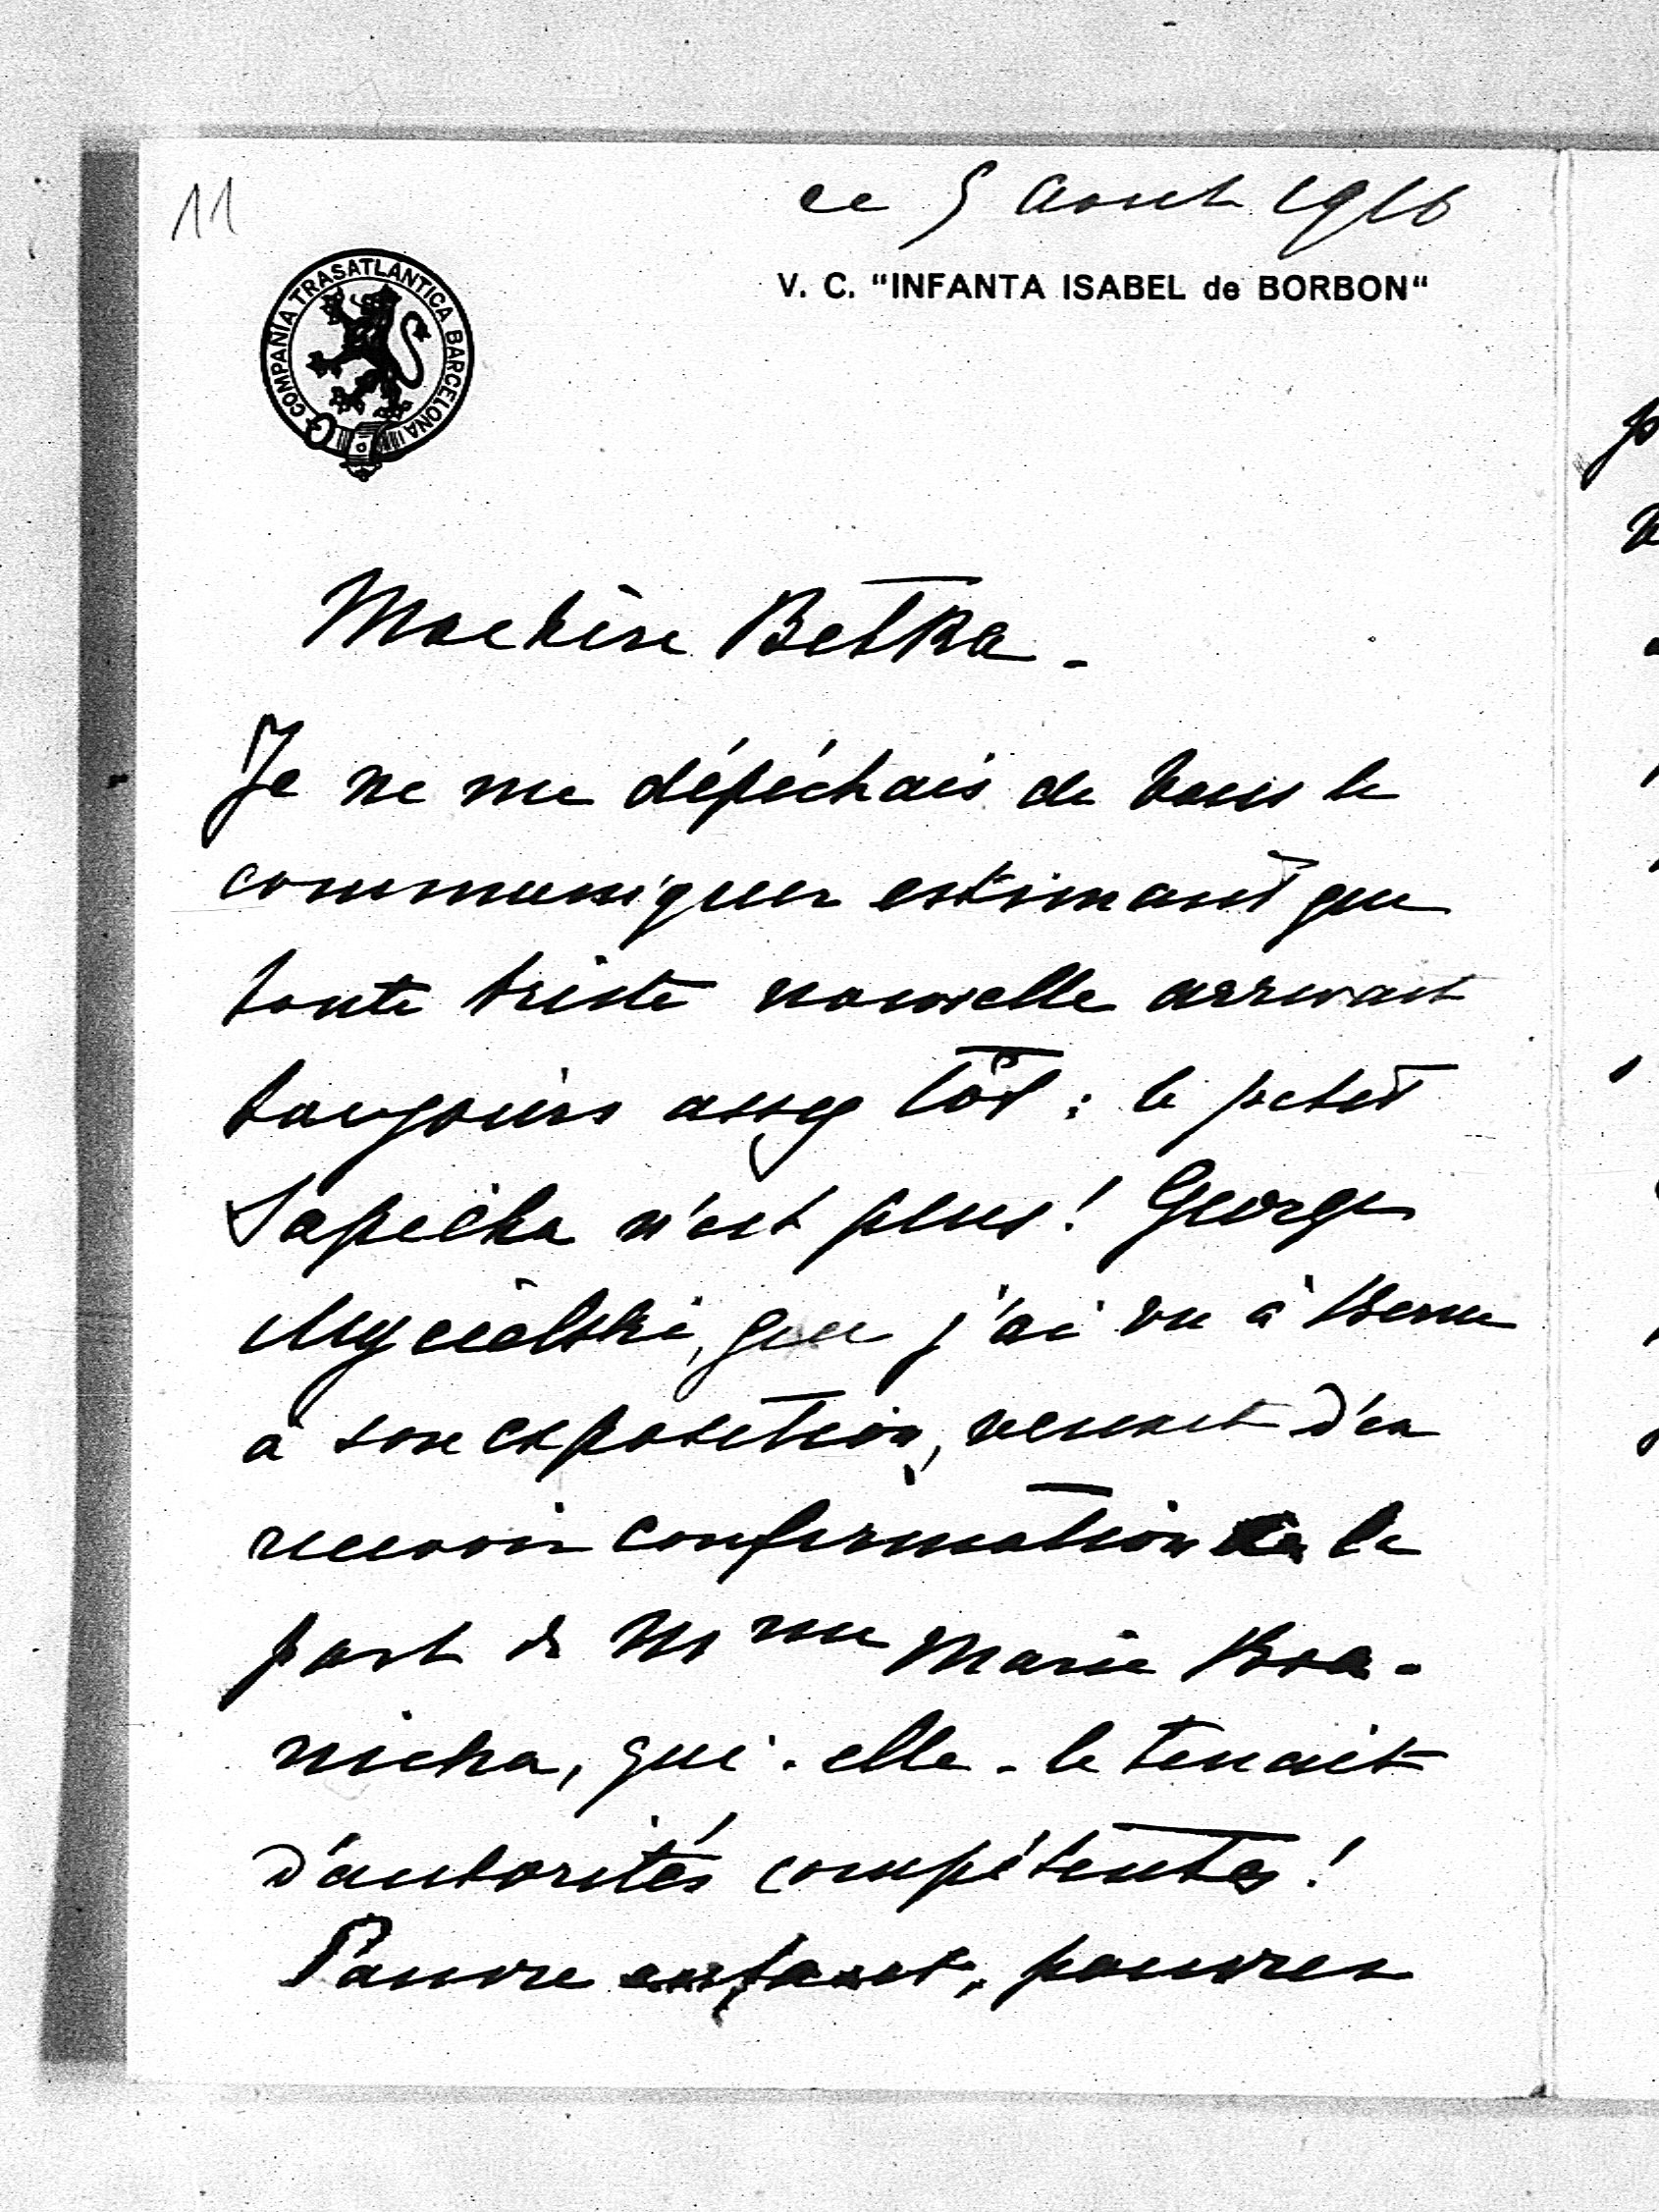 11
ce 5 Aout 1916
V. C. "INFANTA ISABEL de BORBON"
COMPAÑIA TRASATLANTICA BARCELONA
Ma chère Betka -
Je ne me dépéchais de vous le
communiquer estimant que
toute triste nouvelle arrivait
toujours assez tôt : le petit
Sapieha n'est plus! George
Mycielski, que j'ai vu à Berne
à son exposition, venait d'en
recevoir confirmation de la
part de Mme Marie Bra-
nicka, qui - elle - le tenait
d'autorités compétentes!
Pauvre enfant, pauvres